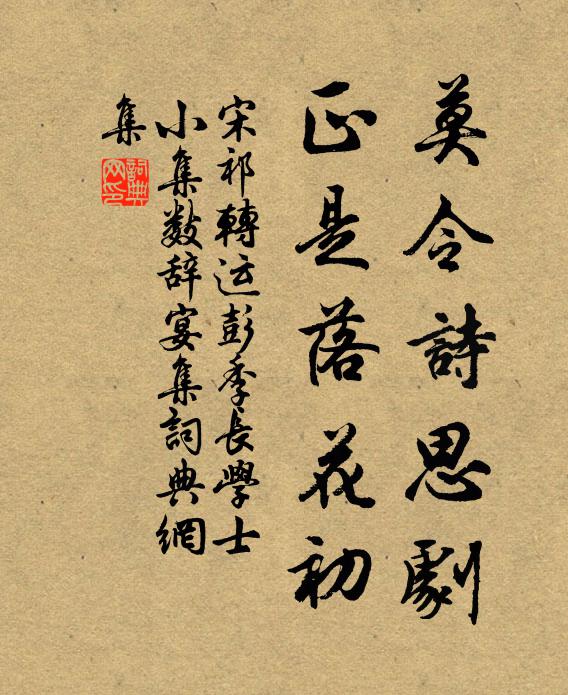 莫令詩思劇
正是落花初
宋祁轉运彭季長學士
小集数辞宴集詞典網
集
詞典网印